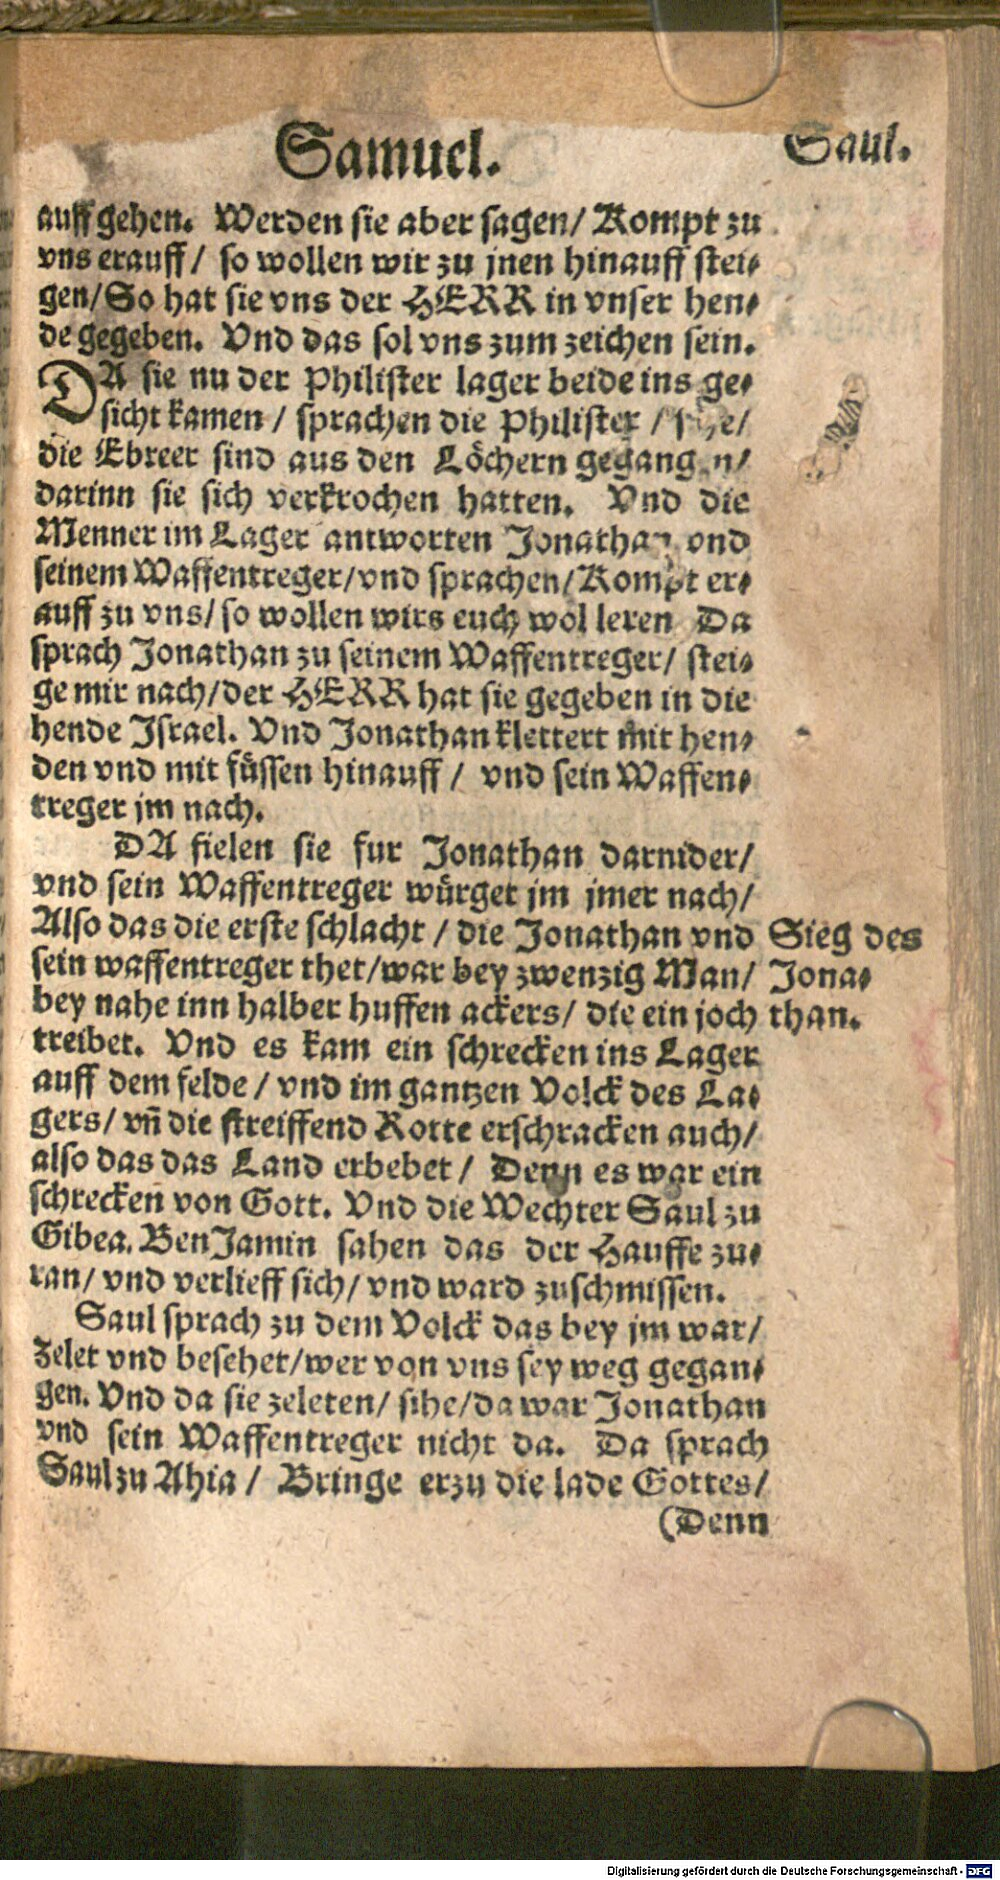 Samuel.
Saul.
auff gehen. Werden sie aber sagen/ Kompt zu
vns erauff/ so wollen wir zu jnen hinauff stei⸗
gen/ So hat sie vns der HERR in vnser hen⸗
de gegeben. Vnd das sol vns zum zeichen sein.
DA sie nu der Philister lager beide ins ge⸗
sicht kamen/ sprachen die Philister/
die Ebreer sind aus den Löchern
darinn sie sich verkrochen hatten. Vnd die
Menner im Lager antworten Jonathan vnd
seinem Waffentreger/ vnd sprachen/ Kompt er⸗
auff zu vns/ so wollen wirs euch wol leren Da
sprach Jonathan zu seinem Waffentreger/ stei⸗
ge mir nach/ der HERR hat sie gegeben in die
hende Israel. Vnd Jonathan klettert mit hen⸗
den vnd mit füssen hinauff/ vnd sein Waffen⸗
treger jm nach.
DA fielen sie fur Jonathan darnider/
vnd sein Waffentreger würget jm jmer nach/
Also das die erste schlacht/ die Jonathan vnd
sein waffentreger thet/ war bey zwenzig Man/
bey nahe inn halber huffen ackers/ die ein joch
treibet. Vnd es kam ein schrecken ins Lager
auff dem felde/ vnd im gantzen Volck des La⸗
gers/ vñ die streiffend Rotte erschracken auch/
also das das Land erbebet/ Denn es war ein
schrecken von Gott. Vnd die Wechter Saul zu
Gibea. BenJamin sahen das der Hauffe zu⸗
ran/ vnd verlieff sich/ vnd ward zuschmissen.
Saul sprach zu dem Volck das bey jm war/
Zelet vnd besehet/ wer von vns sey weg gegan⸗
gen. Vnd da sie zeleten/ sihe/ da war Jonathan
vnd sein Waffentreger nicht da. Da sprach
Saul zu Ahia/ Bringe erzu die lade Gottes/
(Denn
Sieg des
Jona⸗
than.
Digitalisierung gefördert durch die Deutsche Forschungsgemeinschaft - DFG